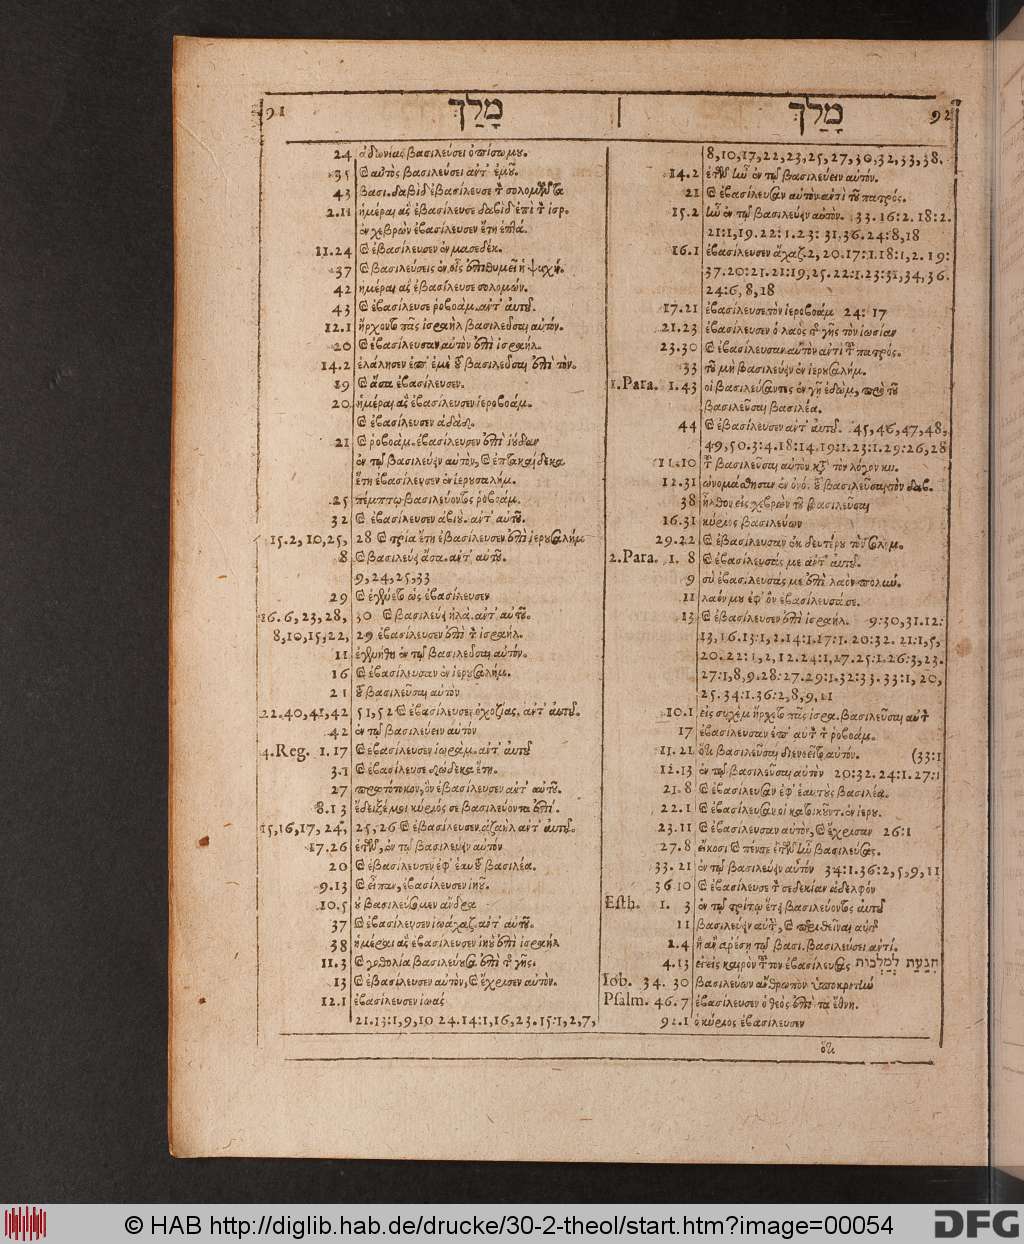 91 מָלַךְ
24 ἀδωνίας βασιλεύσει ὀπίσω μου.
35 καὶ αὐτὸς βασιλεύσει ἀντ' ἐμοῦ.
43 βασι. δαβὶδ ἐβασίλευσε τὸν
2.11 ἡμέραι ἃς ἐβασίλευσε δαβὶδ ἐπὶ τὸν ἰσρ.
ἐν χεβρὼν ἐβασίλευσεν ἔτη ἑπτά.
11.24 καὶ ἐβασίλευσεν ἐν μασεδέκ.
37 καὶ βασιλεύσεις ἐν οἷς ἐπιθυμεῖ ἡ ψυχή.
42 ἡμέραι ἃς ἐβασίλευσε σολομών.
43 καὶ ἐβασίλευσε ῥοβοὰμ. ἀντ' αὐτοῦ.
12.1 ἤρχοντο πᾶς ἰσραὴλ βασιλεῦσαι αὐτόν.
20 καὶ ἐβασίλευσαν αὐτὸν ἐπὶ ἰσραήλ.
14.2 ἐλάλησεν ἐπ' ἐμὲ τοῦ βασιλεῦσαι ἐπὶ τὸν.
19 καὶ ἄσα ἐβασίλευσεν.
20 ἡμέραι ἃς ἐβασίλευσεν ἱεροβοάμ.
καὶ ἐβασίλευσεν
21 καὶ ῥοβοὰμ. ἐβασίλευσεν ἐπὶ ἰούδαν
ἐν τῷ βασιλεύειν αὐτὸν, καὶ ἑπτακαίδεκα
ἔτη ἐβασίλευσεν ἐν ἱερουσαλήμ.
25 πέμπτῳ βασιλεύοντος ῥοβοάμ.
32 καὶ ἐβασίλευσεν ἀβιοὺ. ἀντ' αὐτοῦ.
15.2, 10, 25, 28 καὶ τρία ἔτη ἐβασίλευσεν ἐπὶ ἱερουσαλήμ
8 καὶ βασιλεύει ἄσα. ἀντ' αὐτοῦ.
9, 24, 25, 33
29 καὶ ἐγένετο ὡς ἐβασίλευσεν
16.6, 23, 28, 30 καὶ βασιλεύει ἠλὰ. ἀντ' αὐτοῦ.
8, 10, 15, 22, 29 ἐβασίλευσεν ἐπὶ τὸν ἰσραήλ.
11 ἐγενήθη ἐν τῷ βασιλεῦσαι αὐτόν.
16 καὶ ἐβασίλευσαν ἐν ἱερουσαλήμ.
21 τοῦ βασιλεῦσαι αὐτὸν
22.40, 41, 42 51, 52 καὶ ἐβασίλευσεν ὀχοζίας. ἀντ' αὐτοῦ.
42 ἐν τῷ βασιλεύειν αὐτὸν
4. Reg. 1.17 καὶ ἐβασίλευσεν ἰωρὰμ. ἀντ' αὐτοῦ
3.1 καὶ ἐβασίλευσε δώδεκα ἔτη.
27 πρωτότοκον, ὃν ἐβασίλευσεν ἀντ' αὐτοῦ.
8.13 ἔδειξέ μοι κύριός σε βασιλεύοντα ἐπί.
15, 16, 17, 24, 25, 26 καὶ ἐβασίλευσεν ἀζαὴλ ἀντ' αὐτοῦ.
17.26 ἐτῶν, ἐν τῷ βασιλεύειν αὐτόν
20 καὶ ἐβασίλευσεν ἐφ' ἑαυτοὺς βασιλέα.
9.13 καὶ εἶπαν, ἐβασίλευσεν ἰηοῦ.
10.5 οὐ βασιλεύσομεν ἄνδρα
37 καὶ ἐβασίλευσεν ἰωάχαζ. ἀντ' αὐτοῦ.
38 ἡμέραι ἃς ἐβασίλευσεν ἰηοὺ ἐπὶ ἰσραὴλ
11.3 καὶ γοθολία βασιλεύουσα ἐπὶ τῆς γῆς.
13 καὶ ἐβασίλευσεν αὐτὸν, καὶ ἔχρισεν αὐτόν.
12.1 ἐβασίλευσεν ἰωὰς
21.13:1, 9, 10 24.14:1, 16, 23. 15:1, 2, 7,
מָלַךְ 92
8, 10, 17, 22, 23, 25, 27, 30, 32, 33, 38.
14.2 ἐτῶν ἦν ἐν τῷ βασιλεύειν αὐτόν.
21 καὶ ἐβασίλευσαν αὐτὸν ἀντὶ τοῦ πατρός.
15.2 ἦν ἐν τῷ βασιλεύειν αὐτὸν. 33. 16:2. 18:2.
21:1, 19. 22:1. 23:31, 36. 24:8, 18
16.1 ἐβασίλευσεν ἄχαζ. 2, 20. 17:1. 18:1, 2. 19:
37. 20:21. 21:19, 25. 22:1. 23:31, 34, 36.
24:6, 8, 18
17.21 ἐβασίλευσε τὸν ἱεροβοάμ 24:17
21.23 ἐβασίλευσεν ὁ λαὸς τῆς γῆς τὸν ἰωσίαν
23.30 καὶ ἐβασίλευσαν αὐτὸν ἀντὶ τοῦ πατρός.
33 τοῦ μὴ βασιλεύειν ἐν ἱερουσαλήμ.
1. Para. 1.43 οἱ βασιλεύσαντες ἐν γῇ ἐδὼμ, πρὸ τοῦ
βασιλεῦσαι βασιλέα.
44 καὶ ἐβασίλευσεν ἀντ' αὐτοῦ. 45, 46, 47, 48,
49, 50. 3:4. 18:14. 19:1. 23:1. 29:26, 28
11.10 τοῦ βασιλεῦσαι αὐτὸν κατὰ τὸν λόγον κυ.
12.31 ὠνομάσθησαν ἐν ὀνό. τοῦ βασιλεῦσαι τὸν δαβ.
38 ἦλθον εἰς χεβρὼν τοῦ βασιλεῦσαι
16.31 κύριος βασιλεύων
29.22 καὶ ἐβασίλευσαν ἐκ δευτέρου τὸν σολομ.
2. Para. 1. 8 καὶ ἐβασίλευσάς με ἀντ' αὐτοῦ.
9 σὺ ἐβασίλευσάς με ἐπὶ λαὸν πολύν.
11 λαόν μου ἐφ' ὃν ἐβασίλευσά σε.
13 καὶ ἐβασίλευσεν ἐπὶ ἰσραήλ. 9:30, 31. 12:
13, 16. 13:1, 2. 14:1. 17:1. 20:32. 21:1, 5,
20. 22:1, 2, 12. 24:1, 27. 25:1. 26:3, 23.
27:1, 8, 9. 28:27. 29:1. 32:33. 33:1, 20,
25. 34:1. 36:2, 8, 9, 11
10.1 εἰς συχὲμ ἤρχετο πᾶς ἰσρα. βασιλεῦσαι αὐτὸν
17 ἐβασίλευσαν ἐπ' αὐτῶν τὸν ῥοβοάμ.
11.21 ὅτι βασιλεῦσαι διενοεῖτο αὐτόν. (33:1
12.13 ἐν τῷ βασιλεῦσαι αὐτὸν 20:32. 24:1. 27:1
21.8 καὶ ἐβασίλευσαν ἐφ' ἑαυτοὺς βασιλέα.
22.1 καὶ ἐβασίλευσαν οἱ κατοικοῦντ. ἐν ἱερου.
23.11 καὶ ἐβασίλευσαν αὐτὸν, καὶ ἔχρισαν 26:1
27.8 εἴκοσι καὶ πέντε ἐτῶν ἦν βασιλεύσας.
33.21 ἐν τῷ βασιλεύειν αὐτόν 34:1. 36:2, 5, 9, 11
36 10 καὶ ἐβασίλευσε τὸν σεδεκίαν ἀδελφόν
Esth. 1. 3 ἐν τῷ τρίτῳ ἔτει βασιλεύοντος αὐτοῦ
11 βασιλεύειν αὐτὴν, καὶ περιθεῖναι αὐτῇ
2.4 ἣ ἂν ἀρέσῃ τῷ βασι. βασιλεύσει ἀντί.
4.13 εἰ εἰς καιρὸν τοῦτον ἐβασίλευσας לַמַּלְכוּת
Iob. 34. 30 βασιλεύων ἄνθρωπον ὑποκριτὴν
Psalm. 46.7 ἐβασίλευσεν ὁ θεὸς ἐπὶ τὰ ἔθνη.
92.1 ὁ κύριος ἐβασίλευσεν
ὅτι
© HAB http://diglib.hab.de/drucke/30-2-theol/start.htm?image=00054
DFG